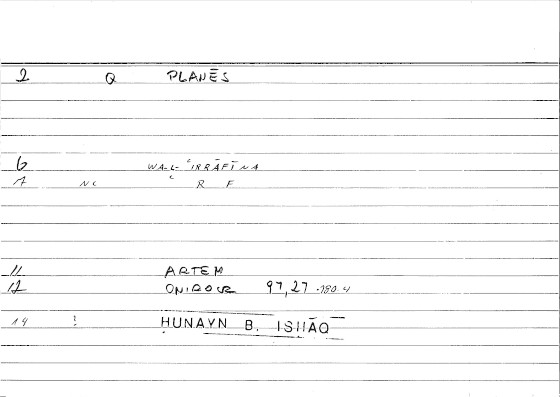 2 Q PLANĒS
6 WA-L-ʿIRRĀFĪNA
7 NC ʿ R F
11 ARTEM
12 ONIROCR 97,27
14 ! HUNAYN B. ISḤĀQ